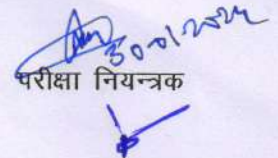 30-01-2024
परीक्षा नियन्त्रक